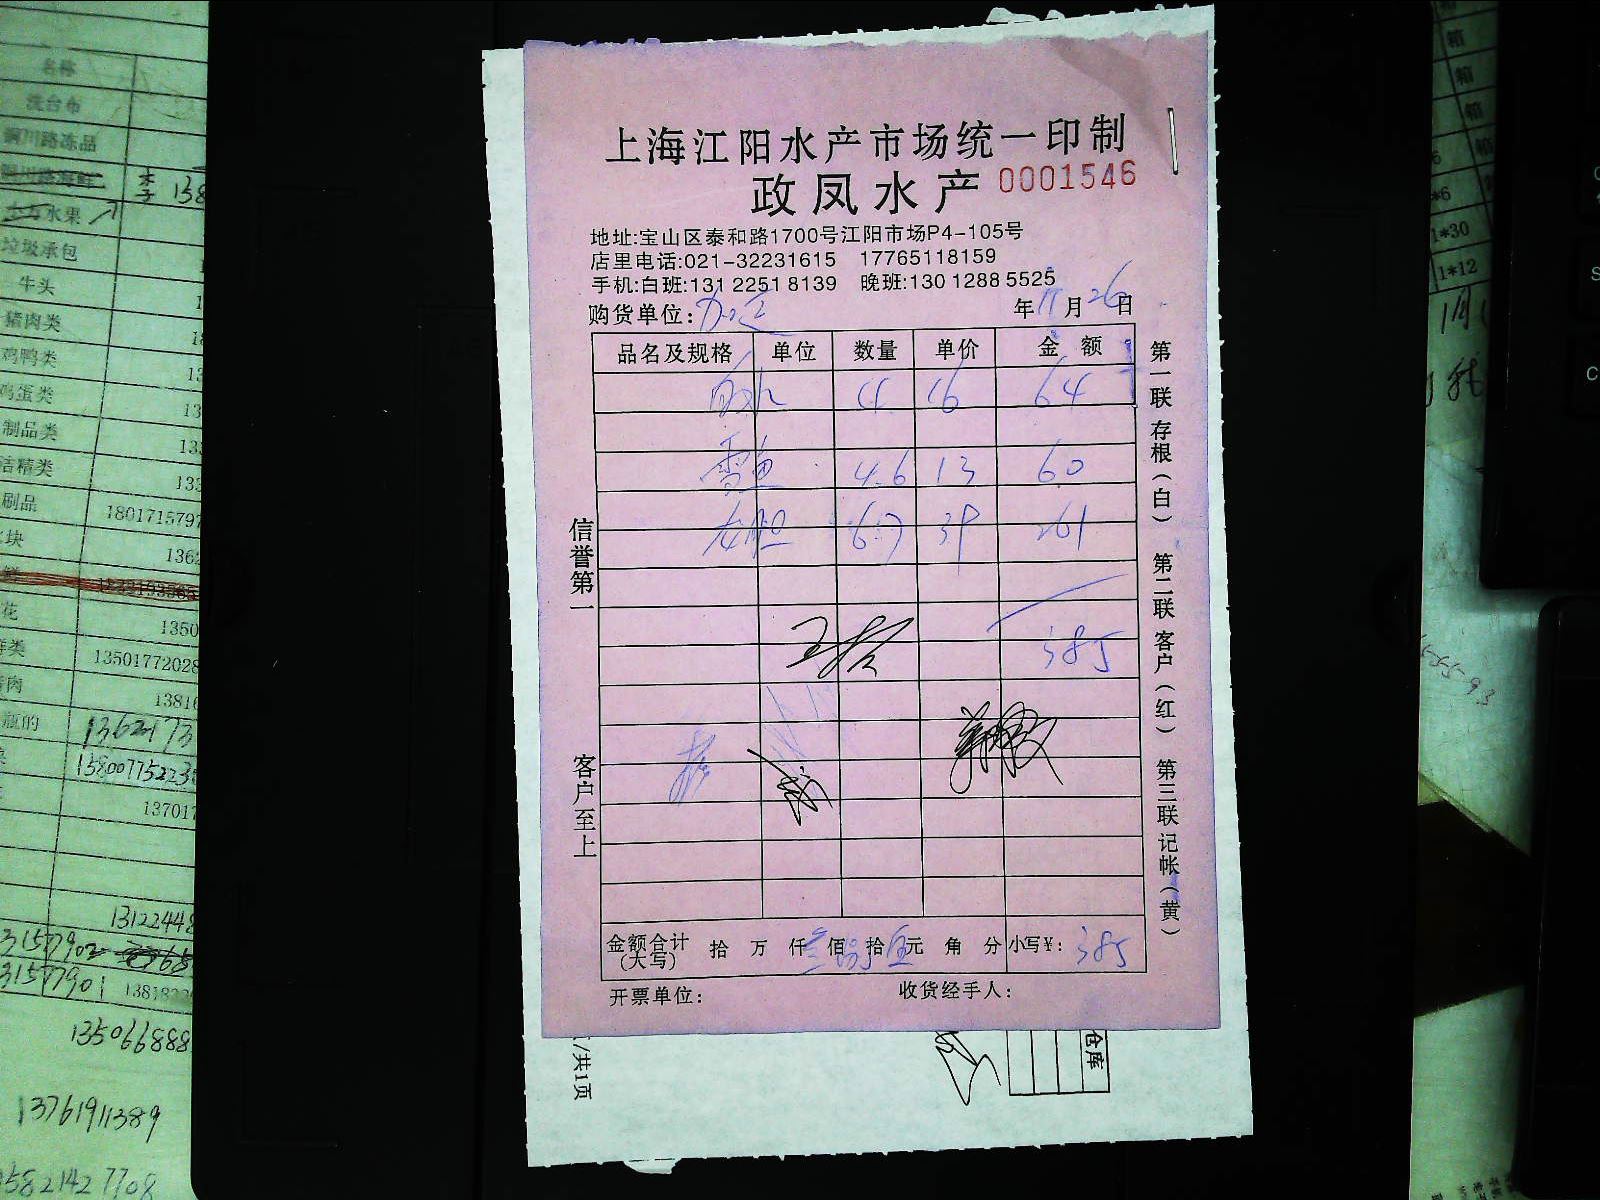 上海江阳水产市场统一印制
政凤水产 0001546
地址:宝山区泰和路1700号江阳市场P4-105号
店里电话:021-32231615 17765118159
手机:白班:131 2251 8139 晚班:130 1288 5525
购货单位: 年 11 月 26 日
品名及规格 单位 数量 单价 金 额
4 16 64
雪鱼 4.6 13 60
龙胆 6.7 39 261
385
金额合计(大写) 拾 万 仟 叁 佰 捌 拾 伍 元 角 分 小写¥: 385
开票单位: 收货经手人:
信誉第一
客户至上
第一联 存根(白) 第二联 客户(红) 第三联 记帐(黄)
/共1页
仓库
名称
洗台布
铜川路冻品
李 138
水果
垃圾承包
牛头
猪肉类
鸡鸭类
鸡蛋类
制品类
洁精类
刷品
1801715797
块
1362
花
1350
13501772028
肉
13816
瓶的
13621773
1580077523
137017
13122448
31577902
31577901
135066888
13761911389
15821427708
箱
箱
箱
箱
*6
1*30
1*12